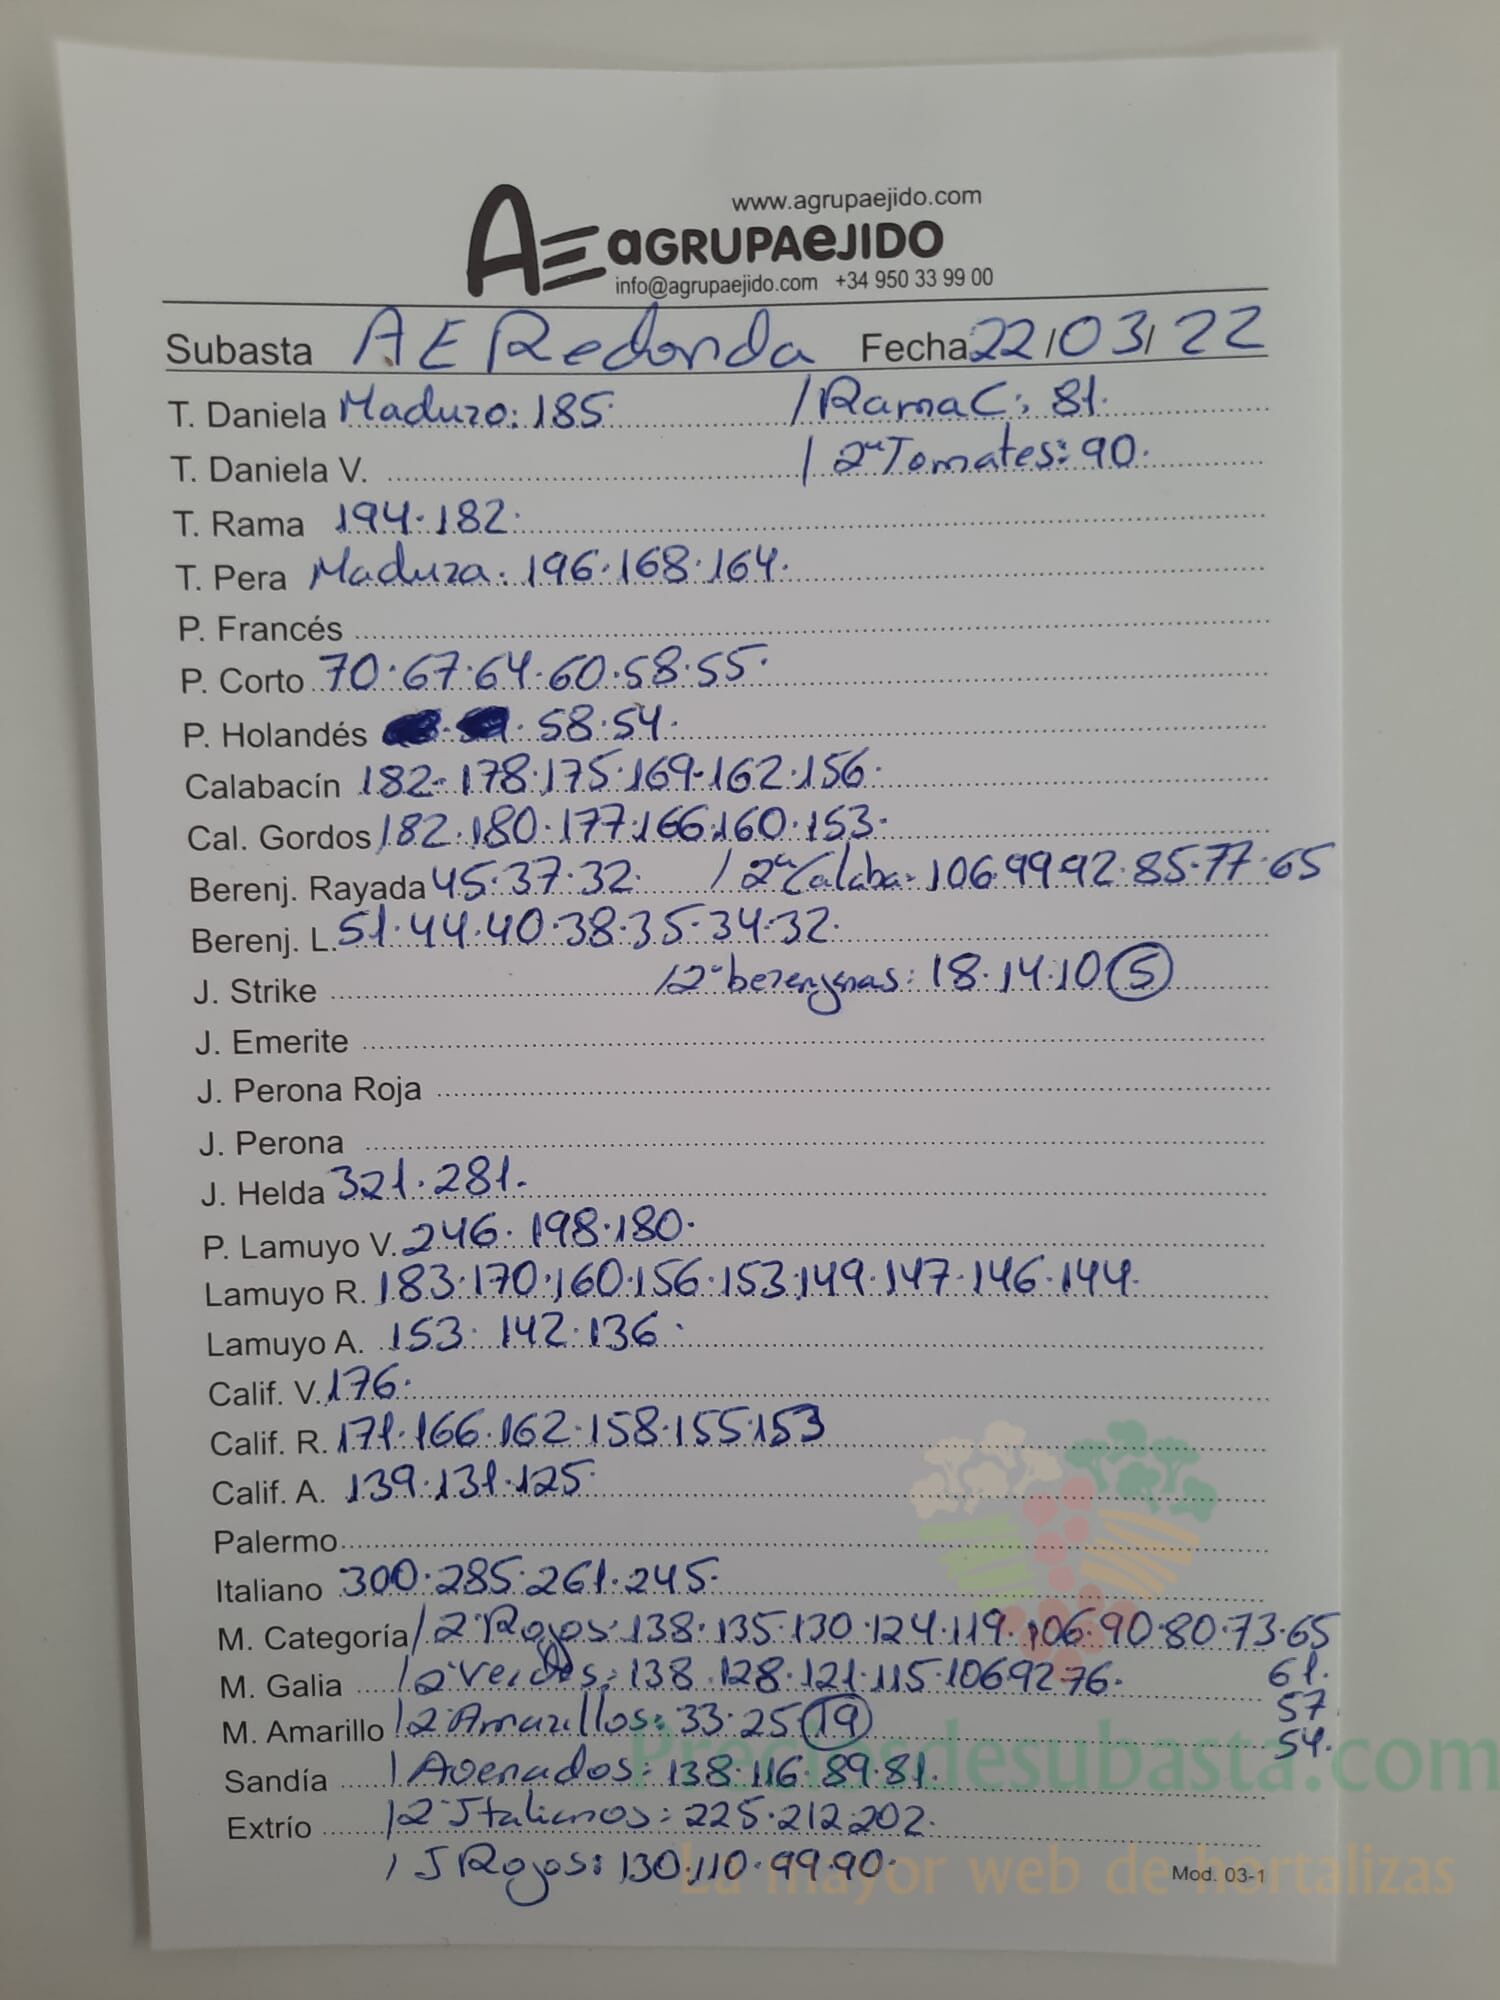 www.agrupaejido.com
AE aGRUPAeJIDO
info@agrupaejido.com +34 950 33 99 00
Subasta AE Redonda Fecha 22/03/22
T. Daniela Maduro: 185. / Rama C: 81.
T. Daniela V. / 2ª Tomates: 90.
T. Rama 194·182·
T. Pera Madura. 196·168·164·
P. Francés
P. Corto 70·67·64·60·58·55·
P. Holandés 58·54·
Calabacín 182·178·175·169·162·156·
Cal. Gordos 182·180·177·166·160·153·
Berenj. Rayada 45·37·32· / 2ª Calaba· 106·99·92·85·77·65
Berenj. L. 51·44·40·38·35·34·32·
J. Strike / 2ª berenjenas: 18·14·10 (5)
J. Emerite
J. Perona Roja
J. Perona
J. Helda 321·281·
P. Lamuyo V. 246·198·180·
Lamuyo R. 183·170·160·156·153·149·147·146·144·
Lamuyo A. 153·142·136·
Calif. V. 176·
Calif. R. 171·166·162·158·155·153
Calif. A. 139·131·125·
Palermo
Italiano 300·285·261·245·
M. Categoría / 2ª Rojos: 138·135·130·124·119·106·90·80·73·65
M. Galia / 2ª Verdes: 138·128·121·115·106·92·76· 61·
57
M. Amarillo / 2ª Amarillos: 33·25 (19) 54·
Sandía / Asenados: 138·116·89·81·
Preciosdesubasta.com
Extrío / 2ª Italianos: 225·212·202·
/ J Rojos: 130·110·99·90·
La mayor web de hortalizas
Mod. 03-1